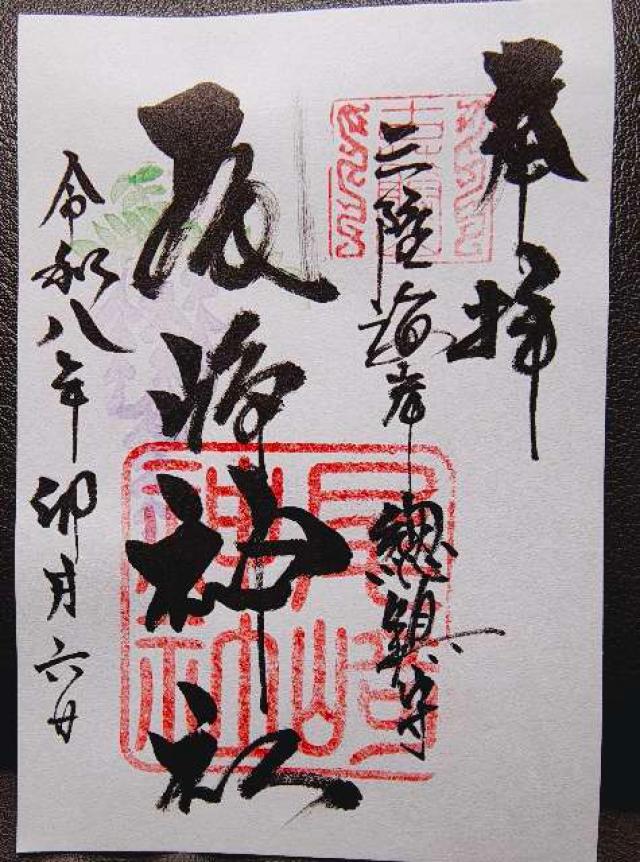 奉拝
三陸海岸總鎮守
尾崎神社
尾崎
神社
令和八年卯月六日